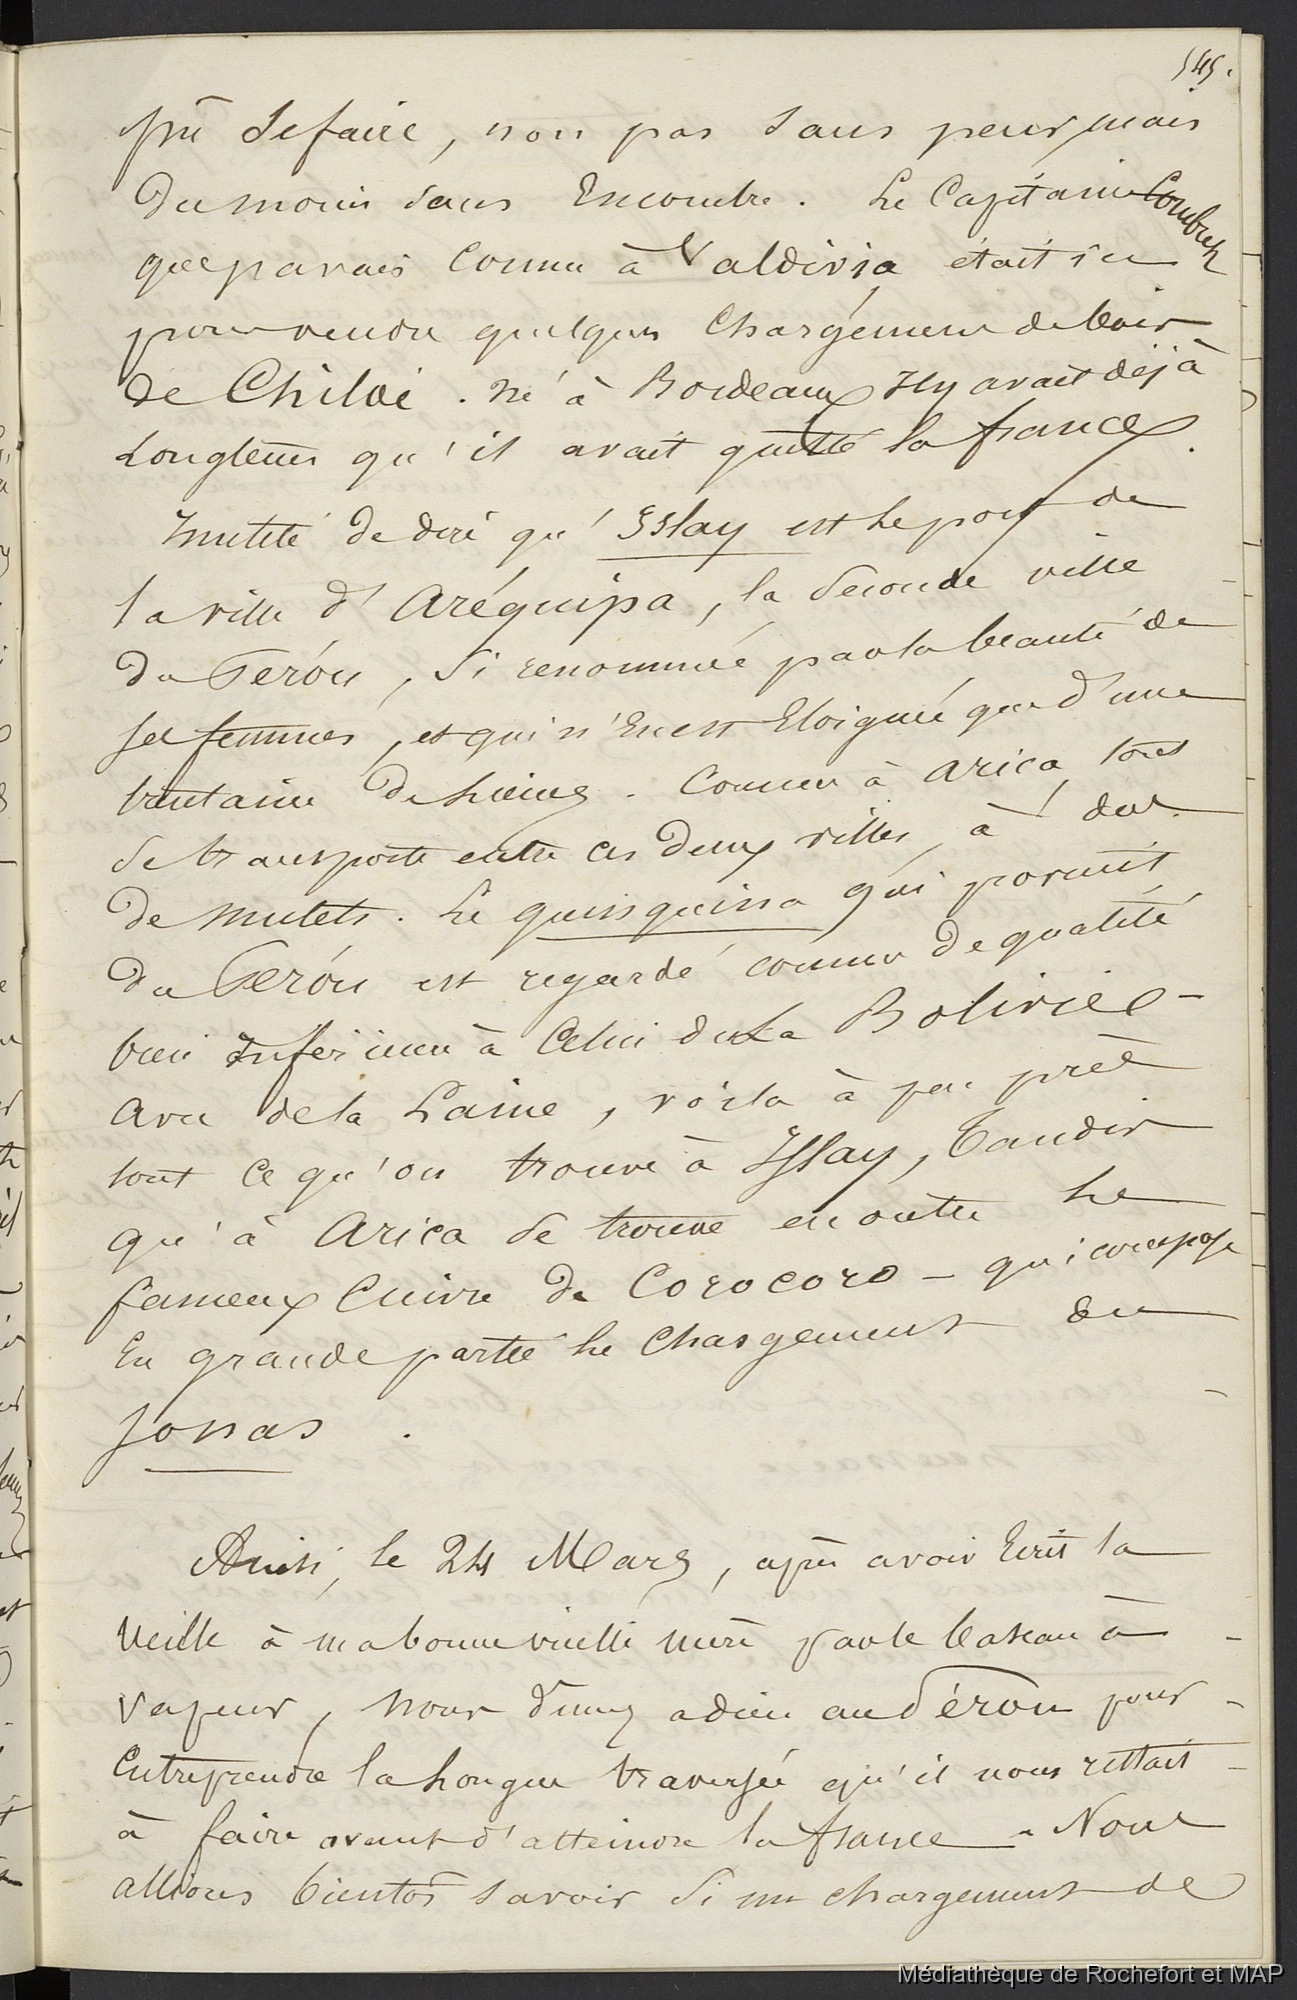 545.
pût se faire, non pas sans peur mais
du moins sans Encombre. Le Capitaine Combes
que j'avais Connu à Valdivia était ici
pour vendre quelques Chargements de bois
de Chiloé. né à Bordeaux Il y avait déjà
Longtems qu'il avait quitté la france.
Inutile de dire qu'Islay est le port de
la ville d'Aréquipa, la Seconde ville
du Pérou, Si renommée par la beauté de
ses femmes, et qui n'En est Eloignée que d'une
trentaine de Lieues. Comme à Arica, tout
se transporte entre ces deux villes, à dos
de mulets. Le quinquina qui provient
du Pérou est regardé comme de qualité
bien Inférieure à Celui de La Bolivie -
Avec de la Laine, voila à peu près
tout ce qu'on trouve à Islay, Tandis
qu'à Arica se trouve en outre Le
fameux Cuivre de Corocoro - qui compose
En grande partie Le Chargement du
Jonas.
Ainsi, le 24 Mars, après avoir Ecrit la
Veille à ma bonne vieille mère par le bateau à
Vapeur, Nous dimes adieu au Pérou pour
Entreprendre la Longue traversée qu'il nous restait
à faire avant d'atteindre la france. Nous
allions bientôt savoir Si un chargement de
Médiathèque de Rochefort et MAP